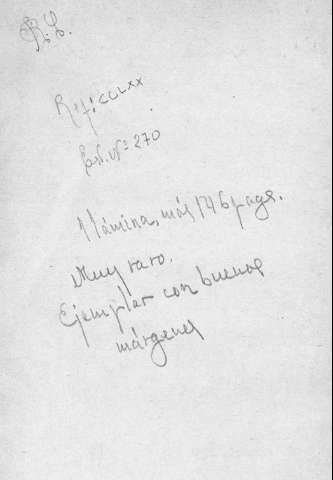 R. L.
Ref: CCLXX
Cat. Nº 270
1 lámina, más 146 pags.
Muy raro.
Ejemplar con buenos
márgenes